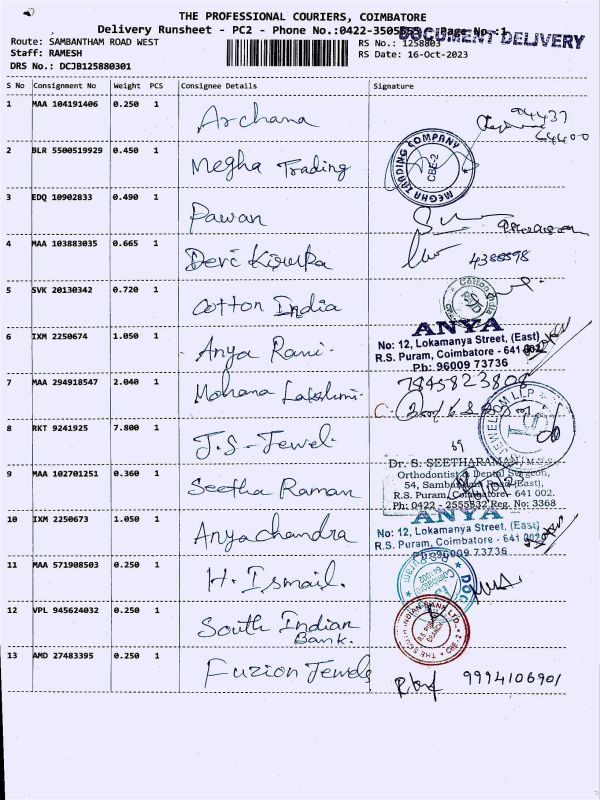 THE PROFESSIONAL COURIERS, COIMBATORE
Delivery Runsheet - PC2 - Phone No.:0422-3505553 Page No.:1
DOCUMENT DELIVERY
Route: SAMBANTHAM ROAD WEST
RS No.: 1258803
Staff: RAMESH
RS Date: 16-Oct-2023
DRS No.: DCJB125880301
S No Consignment No Weight PCS Consignee Details Signature
1 MAA 104191406 0.250 1 Archana 94437
64400
2 BLR 5500519929 0.450 1 Megha Trading
MEGHA TRADING COMPANY
CBE-2
3 EDQ 10902833 0.490 1 Pawan
4 MAA 103883035 0.665 1 Devi 4380578
5 SVK 20130342 0.720 1 Cotton India
6 IXM 2250674 1.050 1 Anya Rani
ANYA
No: 12, Lokamanya Street, (East)
R.S. Puram, Coimbatore - 641 002
Ph: 96009 73736
7 MAA 294918547 2.040 1 Mohana Lakshmi 7845823808
8 RKT 9241925 7.800 1 J.S-Jewel
9 MAA 102701251 0.360 1 Seetha Raman
Dr. S. SEETHARAMAN
Orthodontist & Dental Surgeon,
54, Sambandam Road (East),
R.S. Puram, Coimbatore- 641 002.
Ph: 0422 - 2555532 Reg. No: 3368
10 IXM 2250673 1.050 1 Anya chandra
ANYA
No: 12, Lokamanya Street, (East)
R.S. Puram, Coimbatore - 641 002
Ph:96009 73736
11 MAA 571908503 0.250 1 H. Ismail.
12 VPL 945624032 0.250 1 South Indian
Bank.
13 AMD 27483395 0.250 1 Fuzion Jewels 9994106901